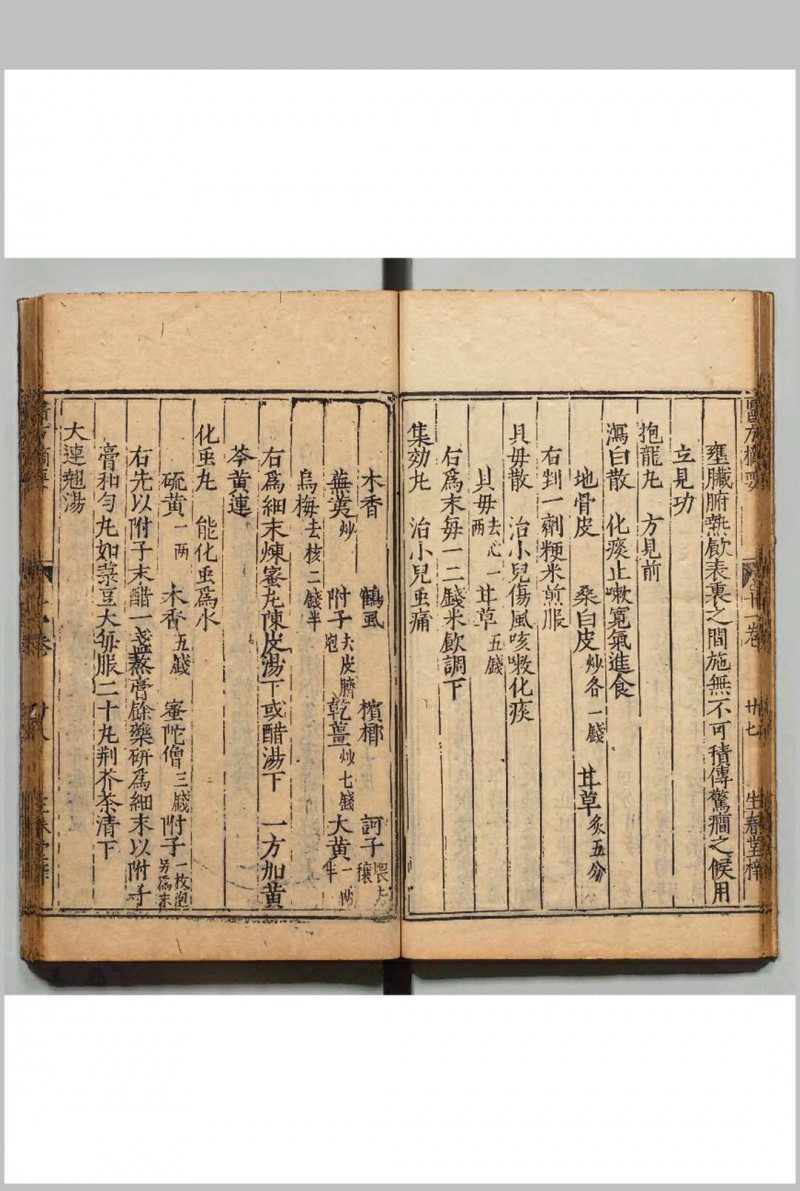 醫方摘要
廿一卷
廿七
生春堂梓
壅臟腑熱飲表裏之間施無不可積傳驚癎之候用
立見功
抱龍丸　方見前
瀉白散　化痰止嗽寛氣進食
地骨皮　桑白皮炒各一錢　甘草炙五分
右剉一劑粳米煎服
貝毋散　治小兒傷風咳嗽化痰
貝毋去心一兩　甘草五錢
右爲末每一二錢米飲調下
集効丸　治小兒虫痛
木香　鶴虱　檳榔　訶子煨去穰
蕪荑炒　附子去皮臍炮　乾薑炒七錢　大黄一兩半
烏梅去核二錢半
右爲細末煉蜜丸陳皮湯下或醋湯下　一方加黄
芩黄連
化虫丸　能化虫爲水
硫黄一兩　木香五錢　蜜陀僧三錢　附子一枚炮另爲末
右先以附子末醋一盞熬膏餘藥研爲細末以附子
膏和勻丸如菉豆大每服二十丸荆芥茶清下
大連翹湯